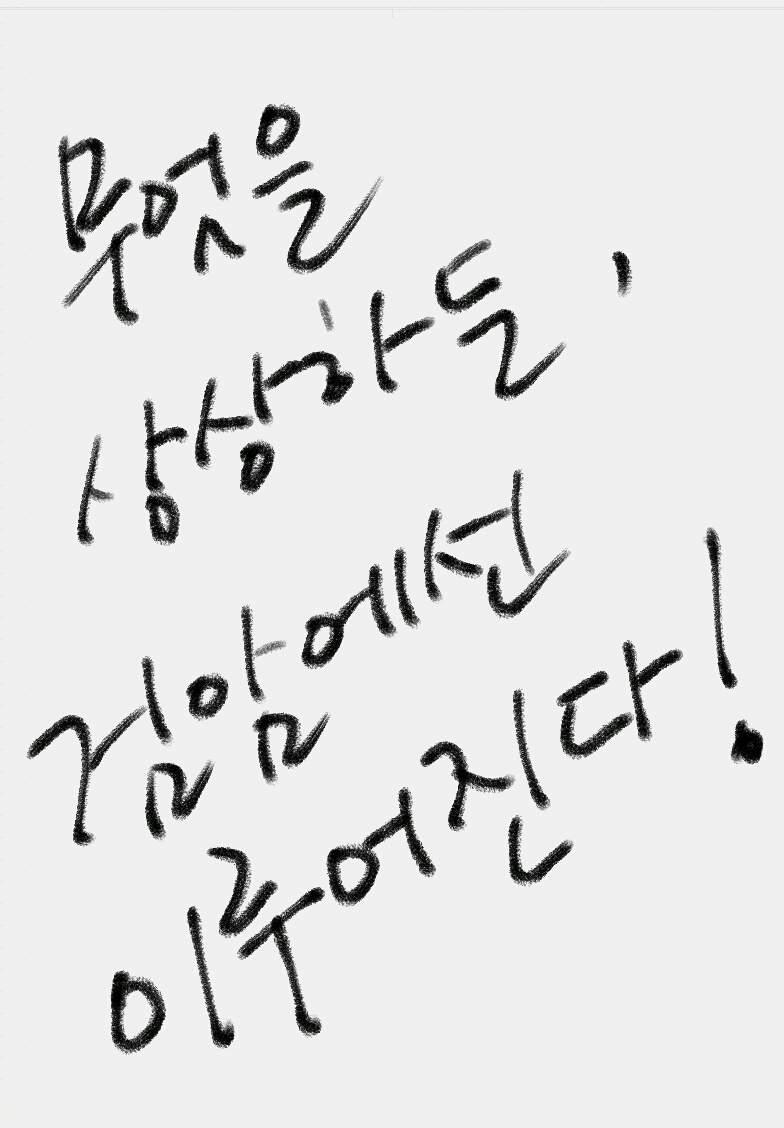 무엇을
상상하든,
짐암에선
이루어진다!